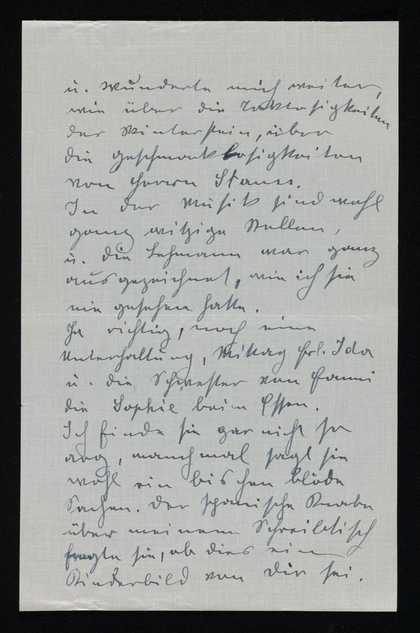 u. wunderte mich weiter,
wie über die Taktlosigkeiten
der Winterstein, über
die Geschmacklosigkeiten
vom Herrn Strauss.
In der Musik sind wohl
ganz witzige Stellen,
u. die Lehmann war ganz
ausgezeichnet, wie ich sie
nie gesehen hatte.
Ja richtig, noch eine
Unterhaltung, Mittag Frl. Ida
u. die Schwester von Fanni
die Sophie beim Essen.
Ich finde sie gar nicht so
arg, manchmal sagt sie
wohl ein bischen blöde
Sachen. Der spanische Knabe
über meinem Schreibtisch
fragte sie, ob dies ein
Kinderbild von Dir sei.